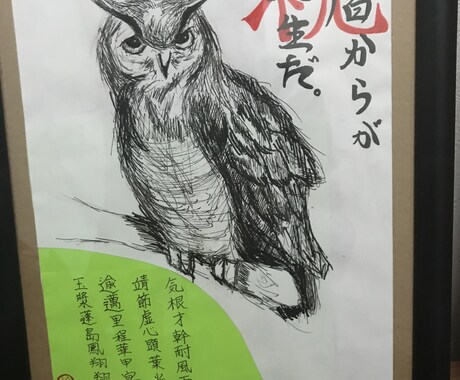 からが
生だ。
気根才幹耐風
靖節虚心頭葉
逾邁里程華甲
玉漿蓬島鳳翔